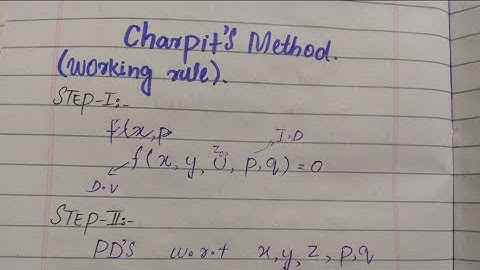 Charpit's Method.
(working rule).
STEP-I:-
f(x,p
I.D
f(x, y, U, p,q) = 0
D.V
STEP-II:-
PD'S w.r.t x,y,z,p,q